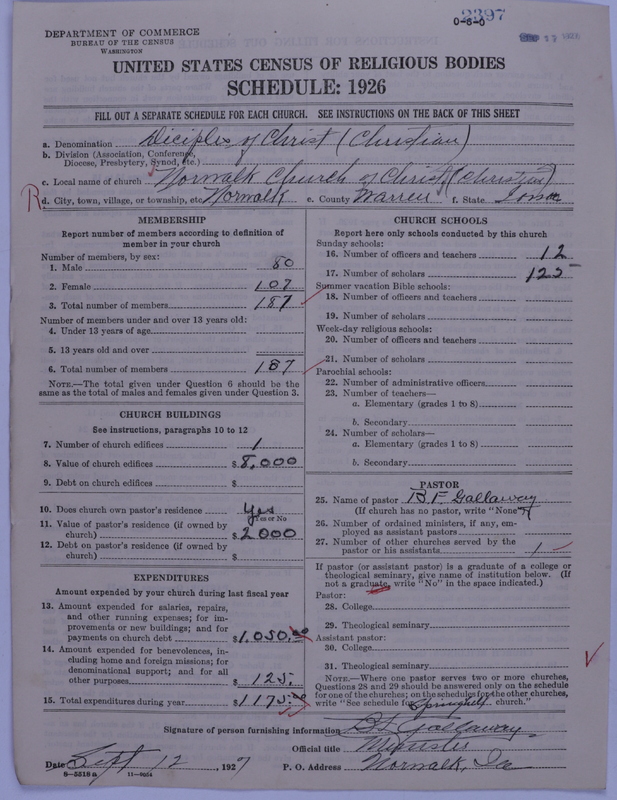 2397
0-6-0
DEPARTMENT OF COMMERCE
BUREAU OF THE CENSUS
WASHINGTON
UNITED STATES CENSUS OF RELIGIOUS BODIES
SCHEDULE: 1926
FILL OUT A SEPARATE SCHEDULE FOR EACH CHURCH. SEE INSTRUCTIONS ON THE BACK OF THIS SHEET
a. Denomination Diciples of Christ (Christian)
b. Division (Association, Conference, Diocese, Presbytery, Synod, etc.)
c. Local name of church Norwalk Church of Christ (Christian)
R
d. City, town, village, or township, etc. Norwalk e. County Warren f. State Iowa
MEMBERSHIP
Report number of members according to definition of
member in your church
Number of members, by sex:
1. Male 80
2. Female 107
3. Total number of members 187
Number of members under and over 13 years old:
4. Under 13 years of age
5. 13 years old and over
6. Total number of members 187
NOTE.—The total given under Question 6 should be the
same as the total of males and females given under Question 3.
CHURCH BUILDINGS
See instructions, paragraphs 10 to 12
7. Number of church edifices 1
8. Value of church edifices $8,000
9. Debt on church edifices $
10. Does church own pastor's residence yes
Yes or No
11. Value of pastor's residence (if owned by
church) $2000
12. Debt on pastor's residence (if owned by
church) $
EXPENDITURES
Amount expended by your church during last fiscal year
13. Amount expended for salaries, repairs,
and other running expenses; for im-
provements or new buildings; and for
payments on church debt $1,050.00
14. Amount expended for benevolences, in-
cluding home and foreign missions; for
denominational support; and for all
other purposes $125.
15. Total expenditures during year $1175.00
CHURCH SCHOOLS
Report here only schools conducted by this church
Sunday schools:
16. Number of officers and teachers 12
17. Number of scholars 125
Summer vacation Bible schools:
18. Number of officers and teachers
19. Number of scholars
Week-day religious schools:
20. Number of officers and teachers
21. Number of scholars
Parochial schools:
22. Number of administrative officers
23. Number of teachers—
a. Elementary (grades 1 to 8)
b. Secondary
24. Number of scholars—
a. Elementary (grades 1 to 8)
b. Secondary
PASTOR
25. Name of pastor B.F. Gallaway
(If church has no pastor, write "None")
26. Number of ordained ministers, if any, em-
ployed as assistant pastors
27. Number of other churches served by the
pastor or his assistants 1
If pastor (or assistant pastor) is a graduate of a college or
theological seminary, give name of institution below. (If
not a graduate, write "No" in the space indicated.)
Pastor:
28. College
29. Theological seminary
Assistant pastor:
30. College
31. Theological seminary
NOTE.—Where one pastor serves two or more churches,
Questions 28 and 29 should be answered only on the schedule
for one of the churches; on the schedules for the other churches,
write "See schedule for church."
Signature of person furnishing information B F Gallaway
Official title Minister
Date Sept 12, 1927 P. O. Address Norwalk, Ia
8—5518a 11—9054